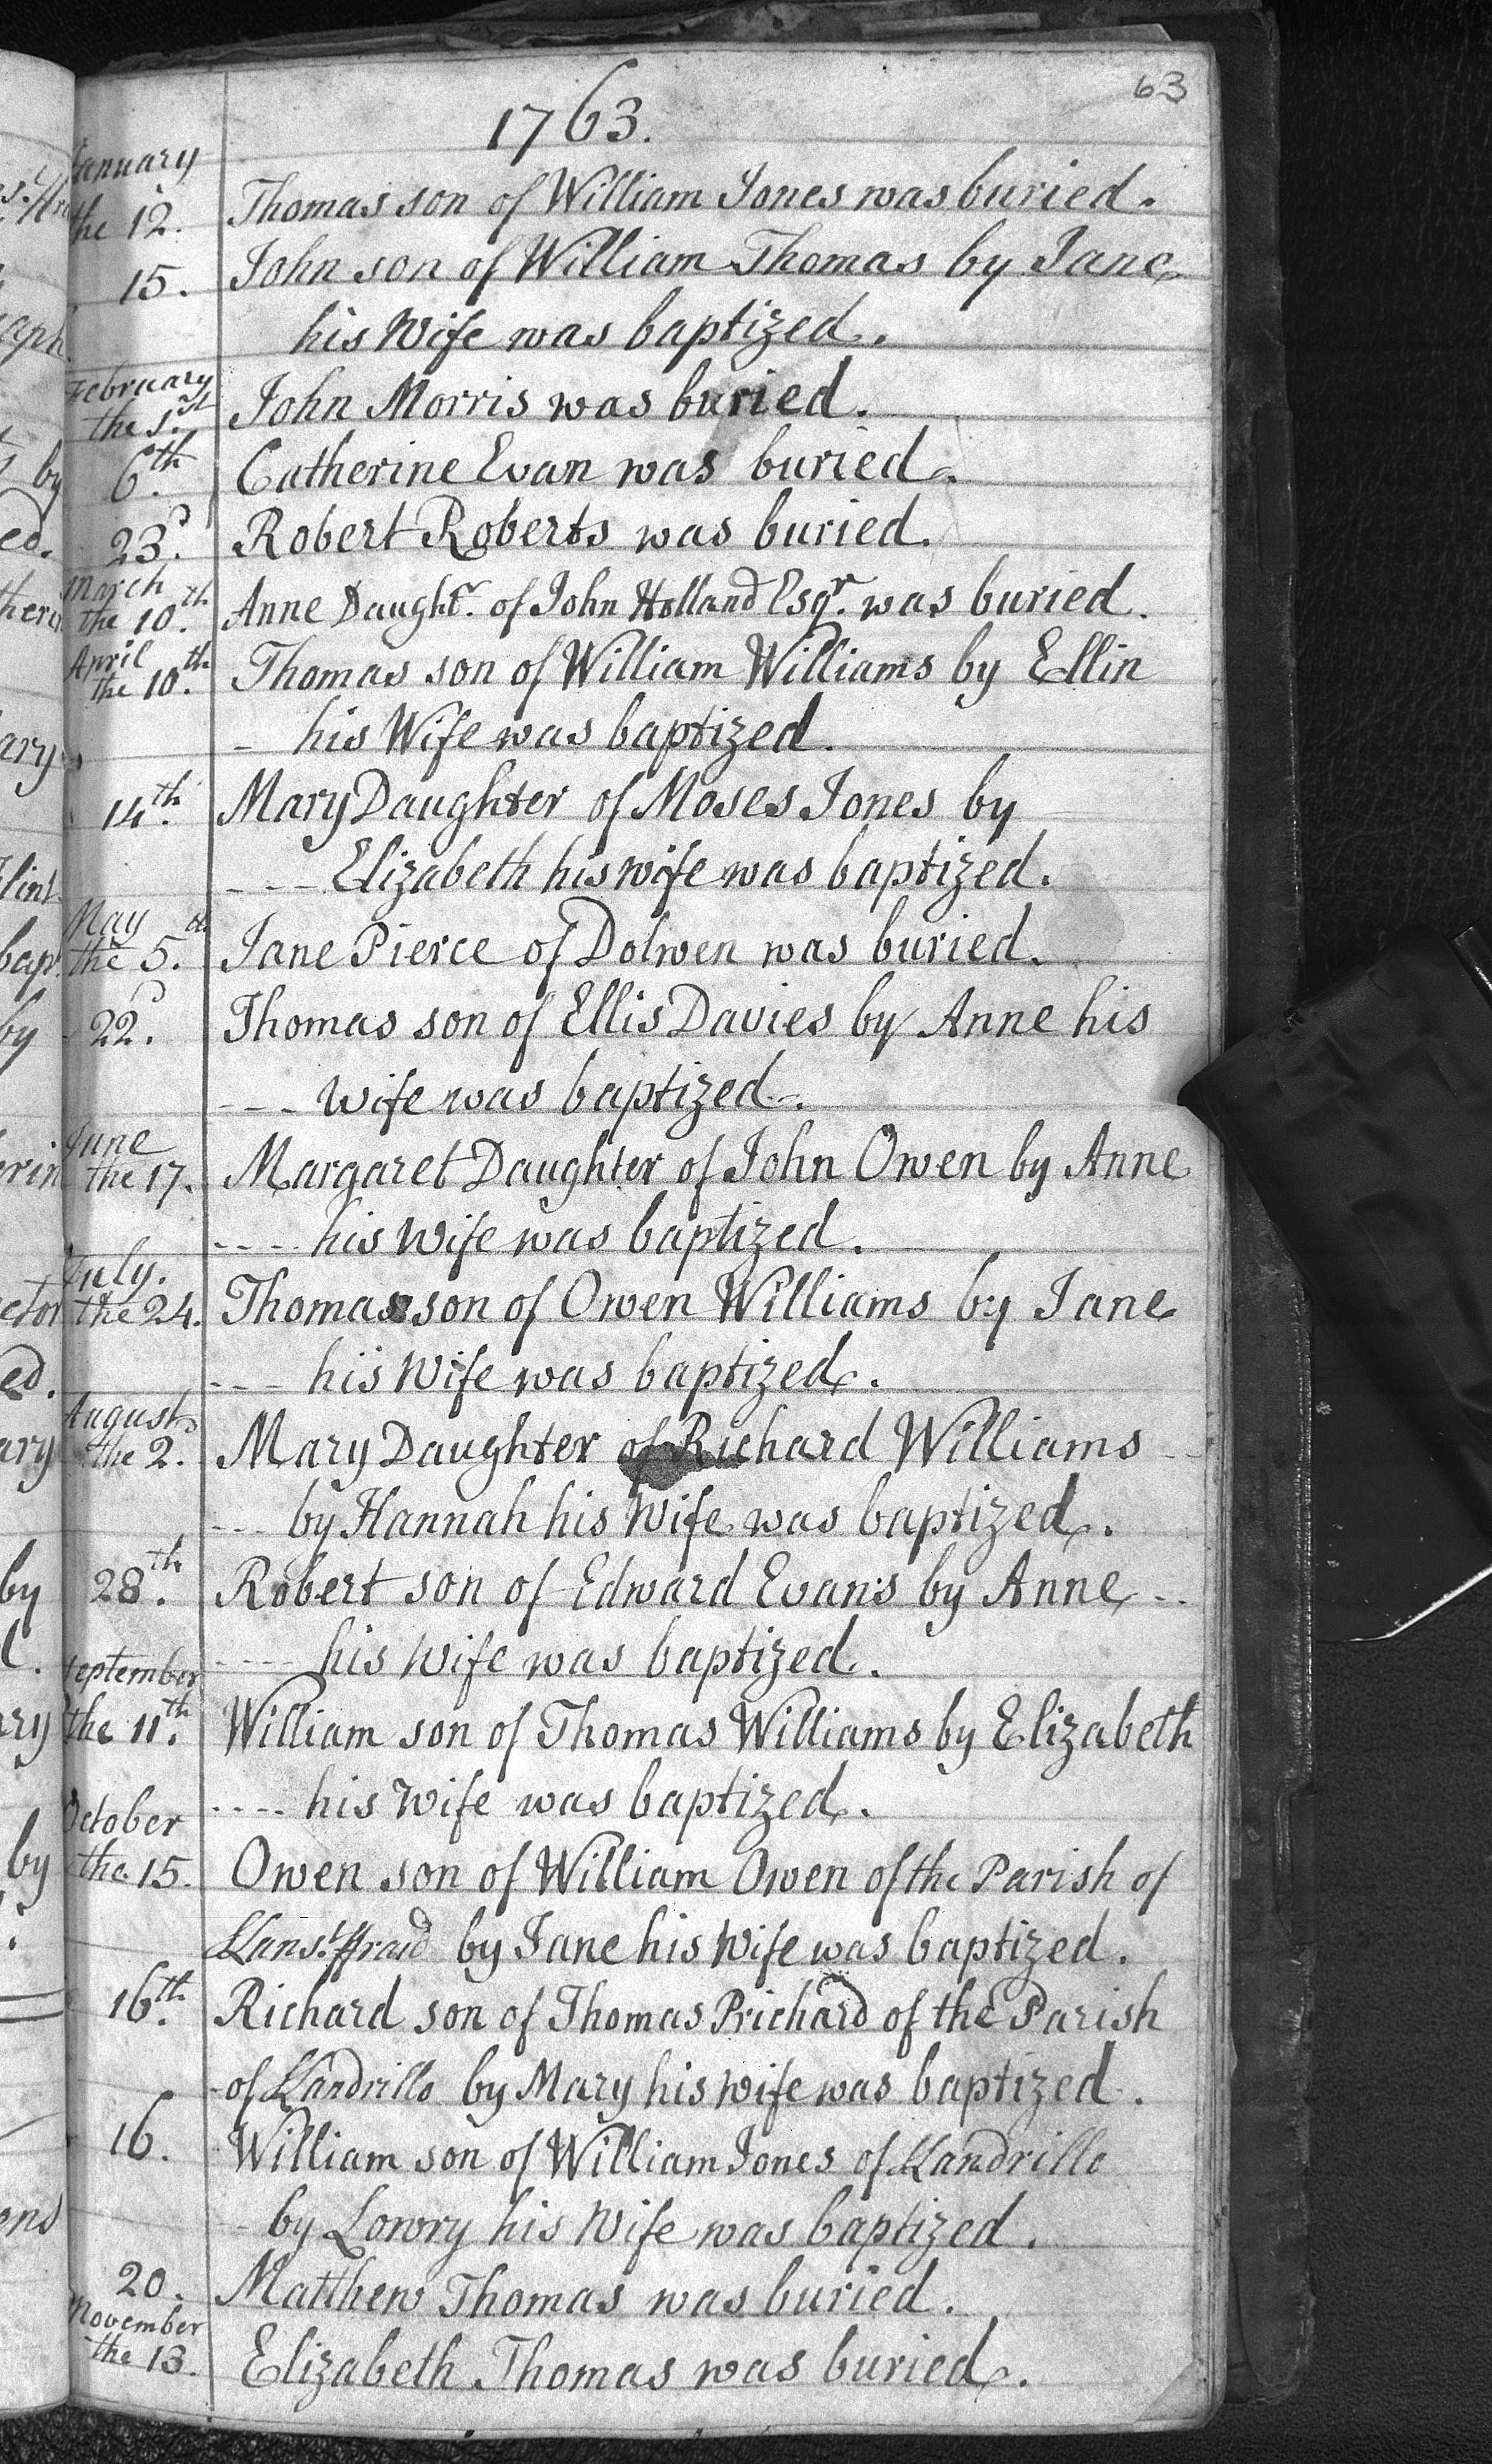 63
1763.
January
the 12. Thomas son of William Jones was buried.
15. John son of William Thomas by Jane
his Wife was baptized.
February
the 1.st John Morris was buried.
6.th Catherine Evan was buried.
23.d Robert Roberts was buried.
March
the 10.th Anne Daught.r of John Holland Esq.r was buried.
April
the 10.th Thomas son of William Williams by Ellin
his Wife was baptized.
14.th Mary Daughter of Moses Jones by
Elizabeth his wife was baptized.
May
the 5.th Jane Pierce of Dolwen was buried.
22.d Thomas son of Ellis Davies by Anne his
wife was baptized.
June
the 17. Margaret Daughter of John Owen by Anne
his Wife was baptized.
July.
the 24. Thomas son of Owen Williams by Jane
his Wife was baptized.
August
the 2. Mary Daughter of Richard Williams
by Hannah his Wife was baptized.
28.th Robert son of Edward Evans by Anne
his Wife was baptized.
September
the 11.th William son of Thomas Williams by Elizabeth
his Wife was baptized.
October
the 15. Owen son of William Owen of the Parish of
Llans.tffraid by Jane his Wife was baptized.
16.th Richard son of Thomas Prichard of the Parish
of Llandrillo by Mary his wife was baptized.
16. William son of William Jones of Llandrillo
by Lowry his Wife was baptized.
20. Matthew Thomas was buried.
November
the 13. Elizabeth Thomas was buried.